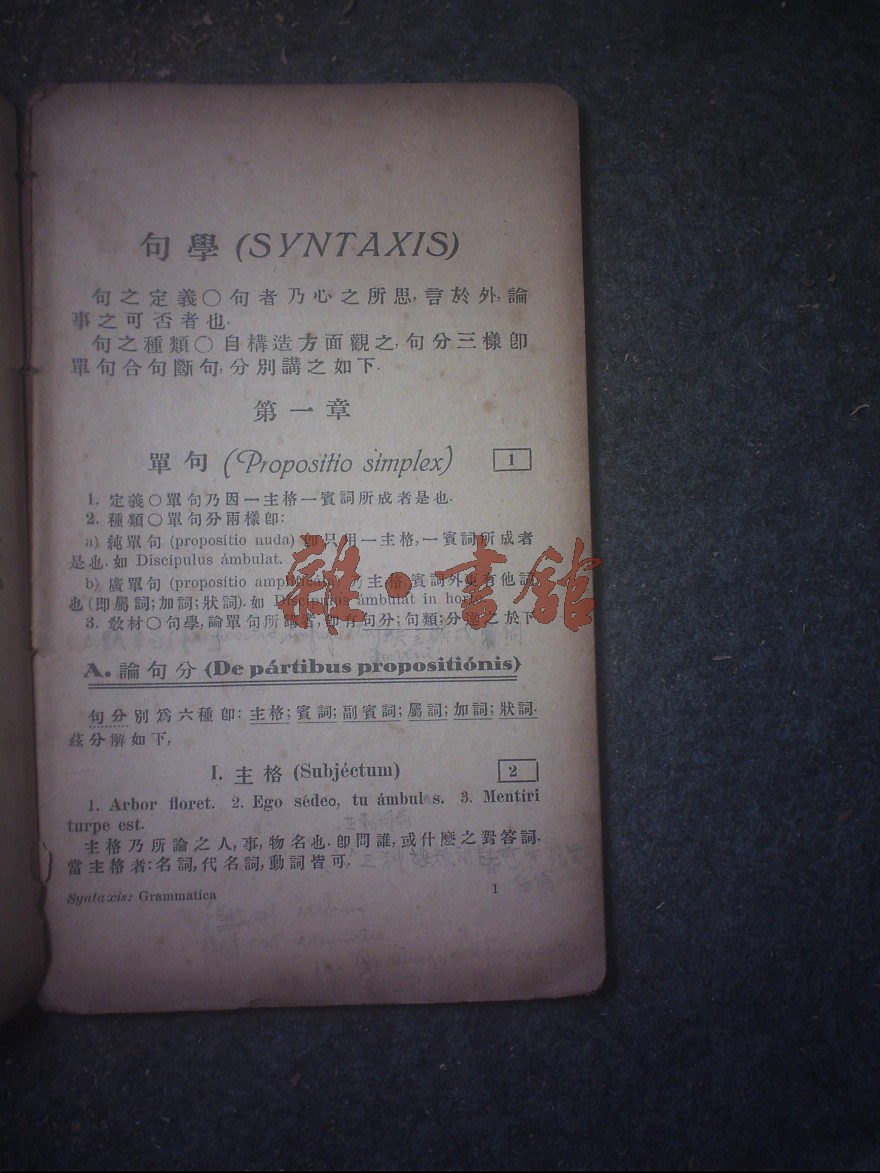 句學 (SYNTAXIS)
句之定義〇句者乃心之所思,言於外,論
事之可否者也.
句之種類〇自構造方面觀之,句分三樣卽
單句合句斷句,分別講之如下.
第一章
單句 (Propositio simplex) 1
1. 定義〇單句乃因一主格一賓詞所成者是也.
2. 種類〇單句分兩樣卽:
a) 純單句 (proposítio nuda) 卽只用一主格,一賓詞所成者
是也.如 Discípulus ámbulat.
b) 廣單句 (proposítio 主格,賓詞外更有他詞
也 (即屬詞;加詞;狀詞).如 Discípulus ambulat in
3. 敎材〇句學,論單句所講者,卽有句分;句類;分述之於下
A. 論句分 (De pártibus propositiónis)
句分別爲六種卽:主格;賓詞;副賓詞;屬詞;加詞;狀詞.
茲分解如下,
I. 主格 (Subjéctum) 2
1. Arbor floret. 2. Ego sédeo, tu ámbul s. 3. Mentiri
turpe est.
主格乃所論之人,事,物名也.卽問誰,或什麽之對答詞.
當主格者:名詞,代名詞,動詞皆可.
Syntaxis: Grammatica 1
雜·書館